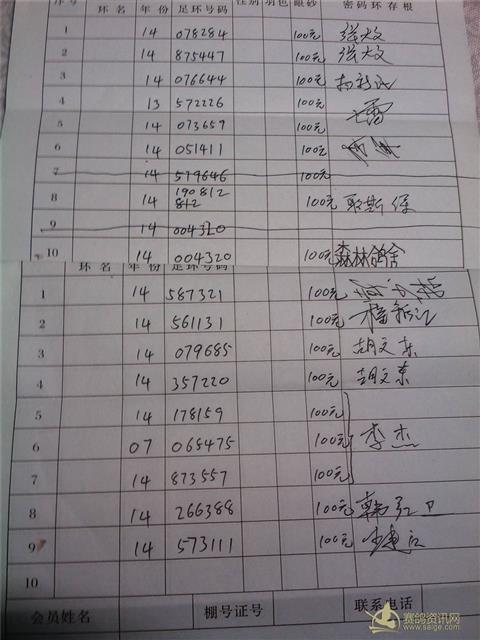 序号 环名 年份 足环号码 性别 羽色 眼砂 密码环存根
1 14 078284 100元 张大文
2 14 875447 100元 张大文
3 14 076644 100元
4 13 572226 100元
5 14 073659 100元
6 14 051411 100元
7 14 579646 100元
8 14 190812 812 100元 耿斯保
9 14 004320
10 14 004320 100元 森林鸽舍
环名 年份 足环号码
1 14 587321 100元
2 14 561131 100元
3 14 079685 100元 胡文东
4 14 357220 100元 胡文东
5 14 178159 100元
6 07 065475 100元 李杰
7 14 873557 100元
8 14 266388 100元 韩红卫
9 14 573111 100元
10
会员姓名 棚号证号 联系电话
赛鸽资讯网
www.saige.com